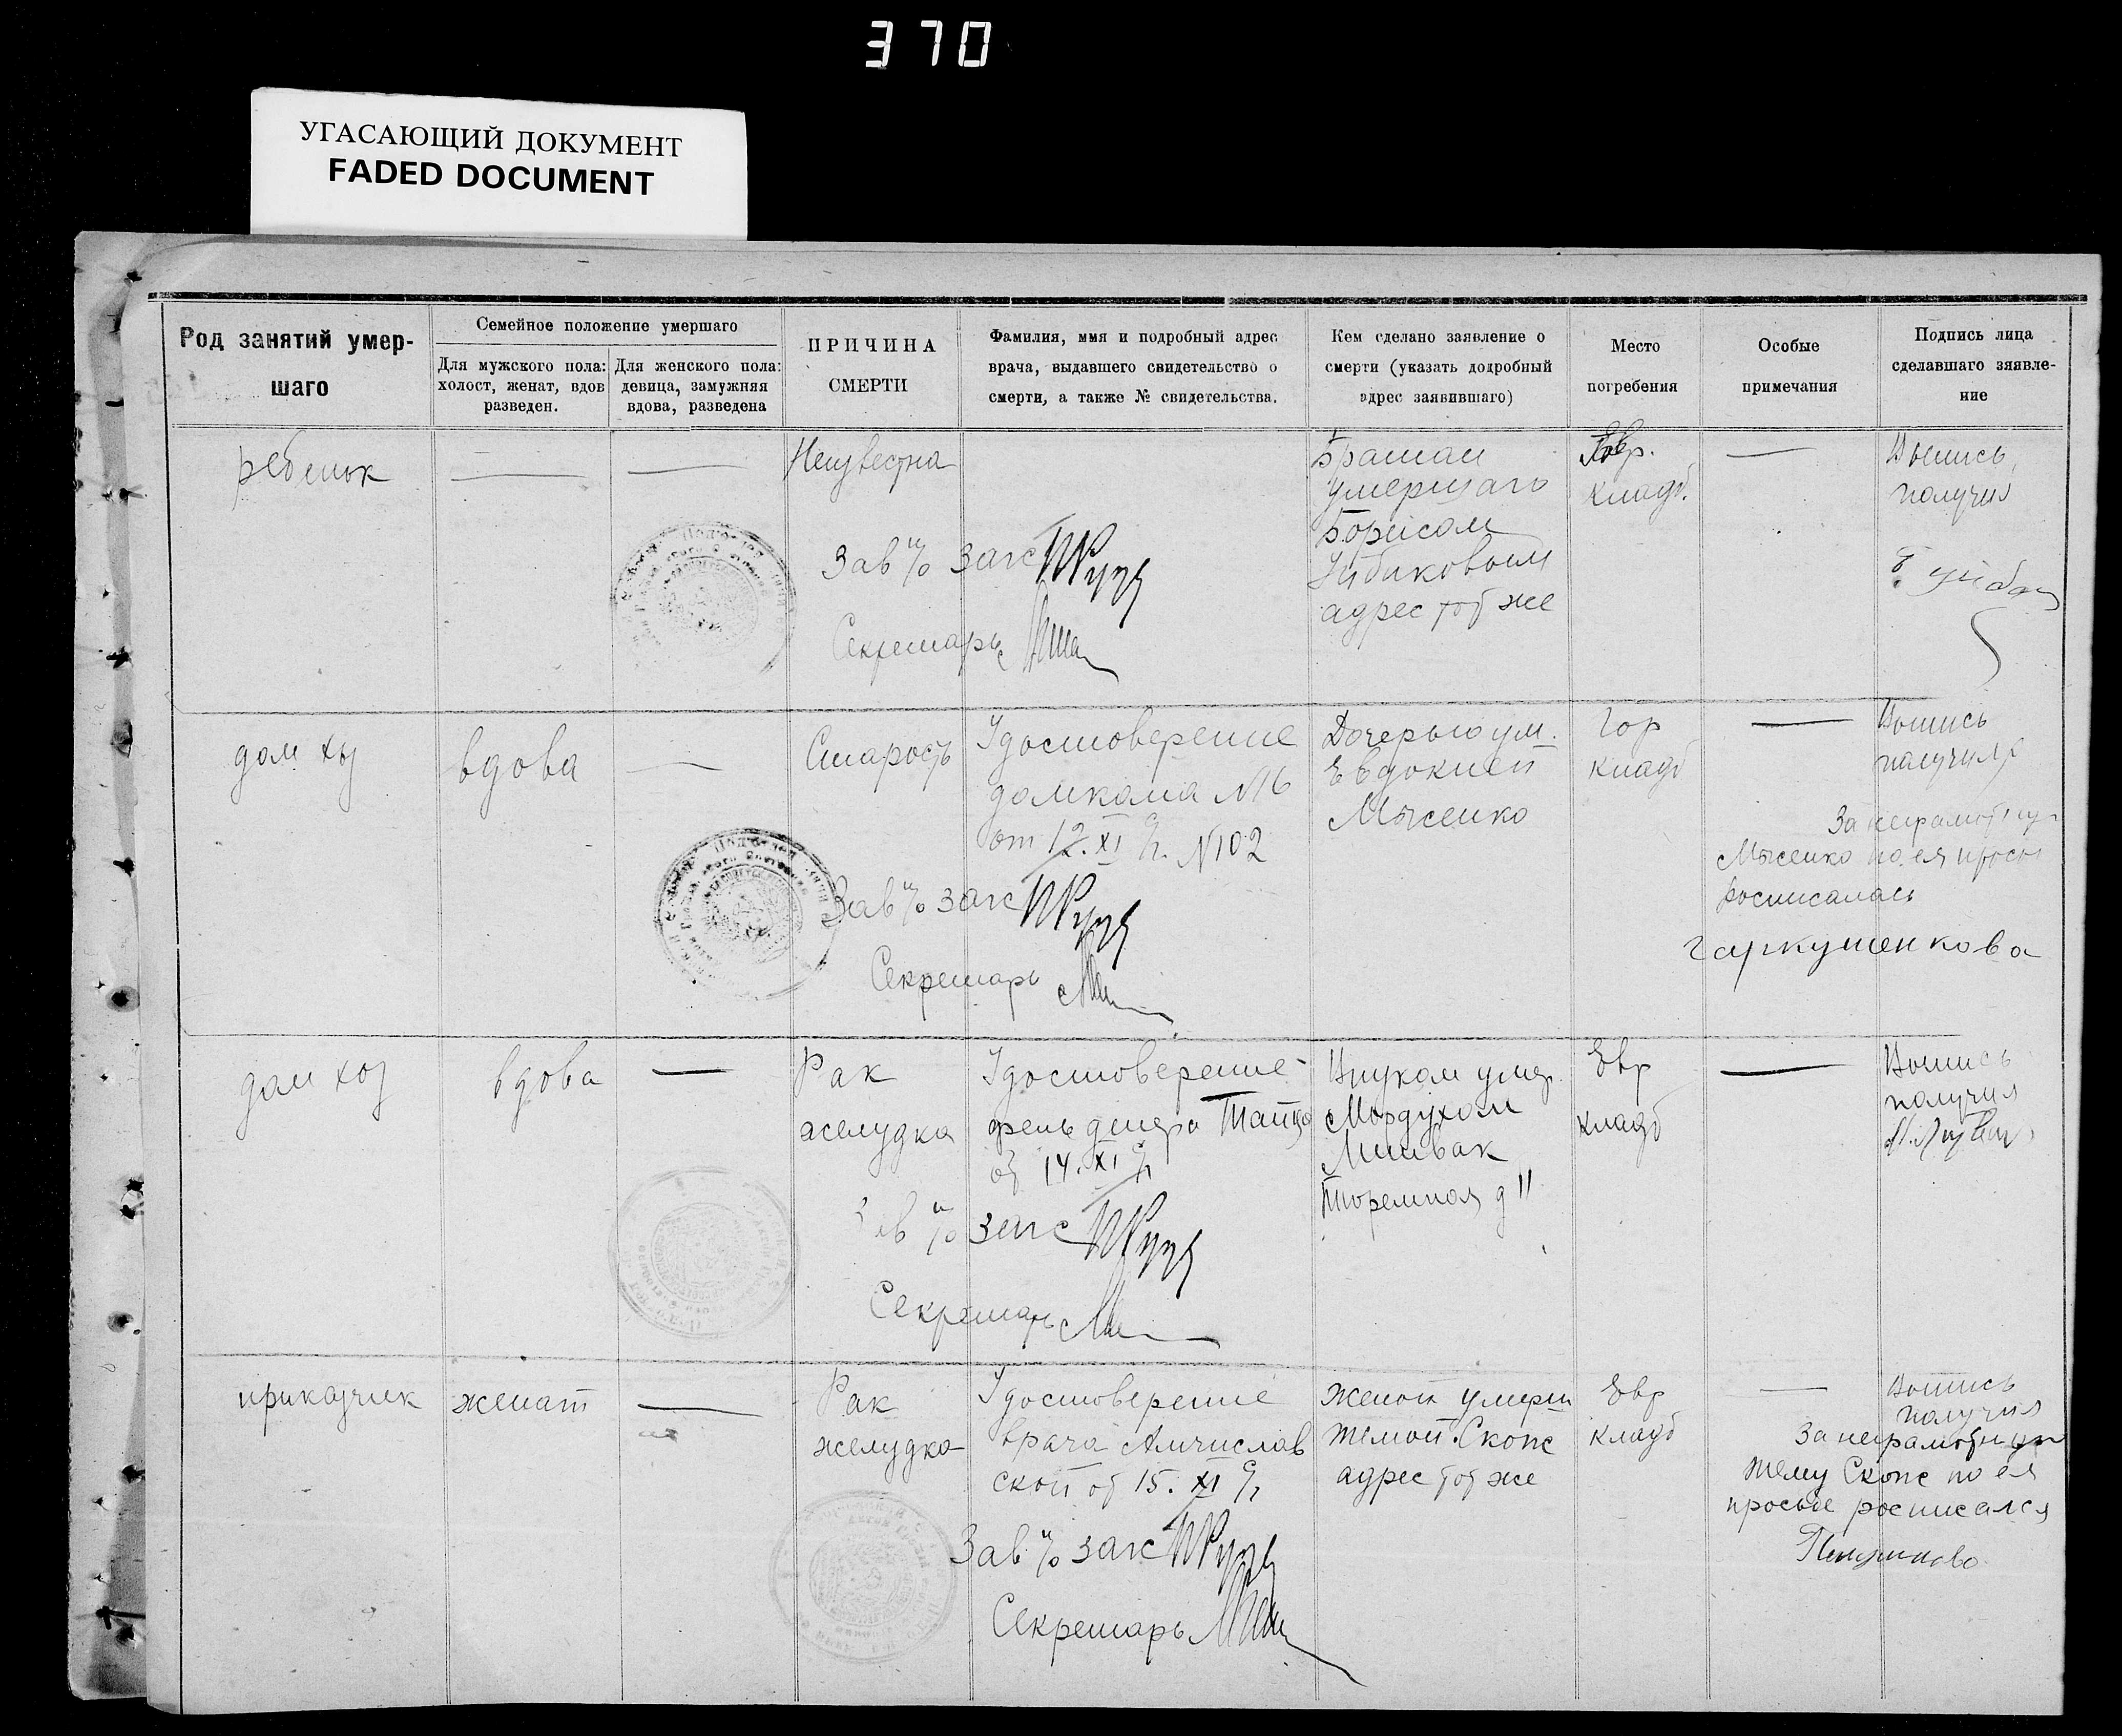 370
УГАСАЮЩИЙ ДОКУМЕНТ
FADED DOCUMENT
Род занятий умер-
шаго
Семейное положение умершаго
Для мужского пола:
холост, женат, вдов
разведен.
Для женского пола:
девица, замужняя
вдова, разведена
ПРИЧИНА
СМЕРТИ
Фамилия, ммя и подробный адрес
врача, выдавшего свидетельство о
смерти, а также № свидетельства.
Кем сделано заявление о
смерти (указать додробный
адрес заявившаго)
Место
погребения
Особые
примечания
Подпись лица
сделавшаго зяявле-
ние
ребенок
—
—
Неизвестна
Зав п/о загс
Секретарь
Братом
умершаго
Борисом
адрес тот же
Евр.
кладб.
—
Выпись
получил
дом хоз
вдова
—
Старость
Удостоверение
домкома №16
от 12.XI с/г. №102
Зав п/о загс
Секретарь
Дочерью ум.
Евдокией
Мысенко
Гор
кладб
—
Выпись
получила
За неграмотную
Мысенко по ея прось
росписалась
Гаркушенкова
дом хоз
вдова
—
Рак
желудка
Удостоверение
фельдшера Тайца
от 14.XI с/г
Зав п/о загс
Секретарь
Внуком умер.
Мордухом
Литвак
Тюремная д 11
Евр
кладб
—
Выпись
получил
приказчик
женат
—
Рак
желудка
Удостоверение
врача
ской от 15.XI с/г
Зав п/о загс
Секретарь
Женой умерш
Темой Скопс
адрес тот же
Евр
кладб
—
Выпись
получил
За неграмотную
Тему Скопс по ея
просьбе росписался